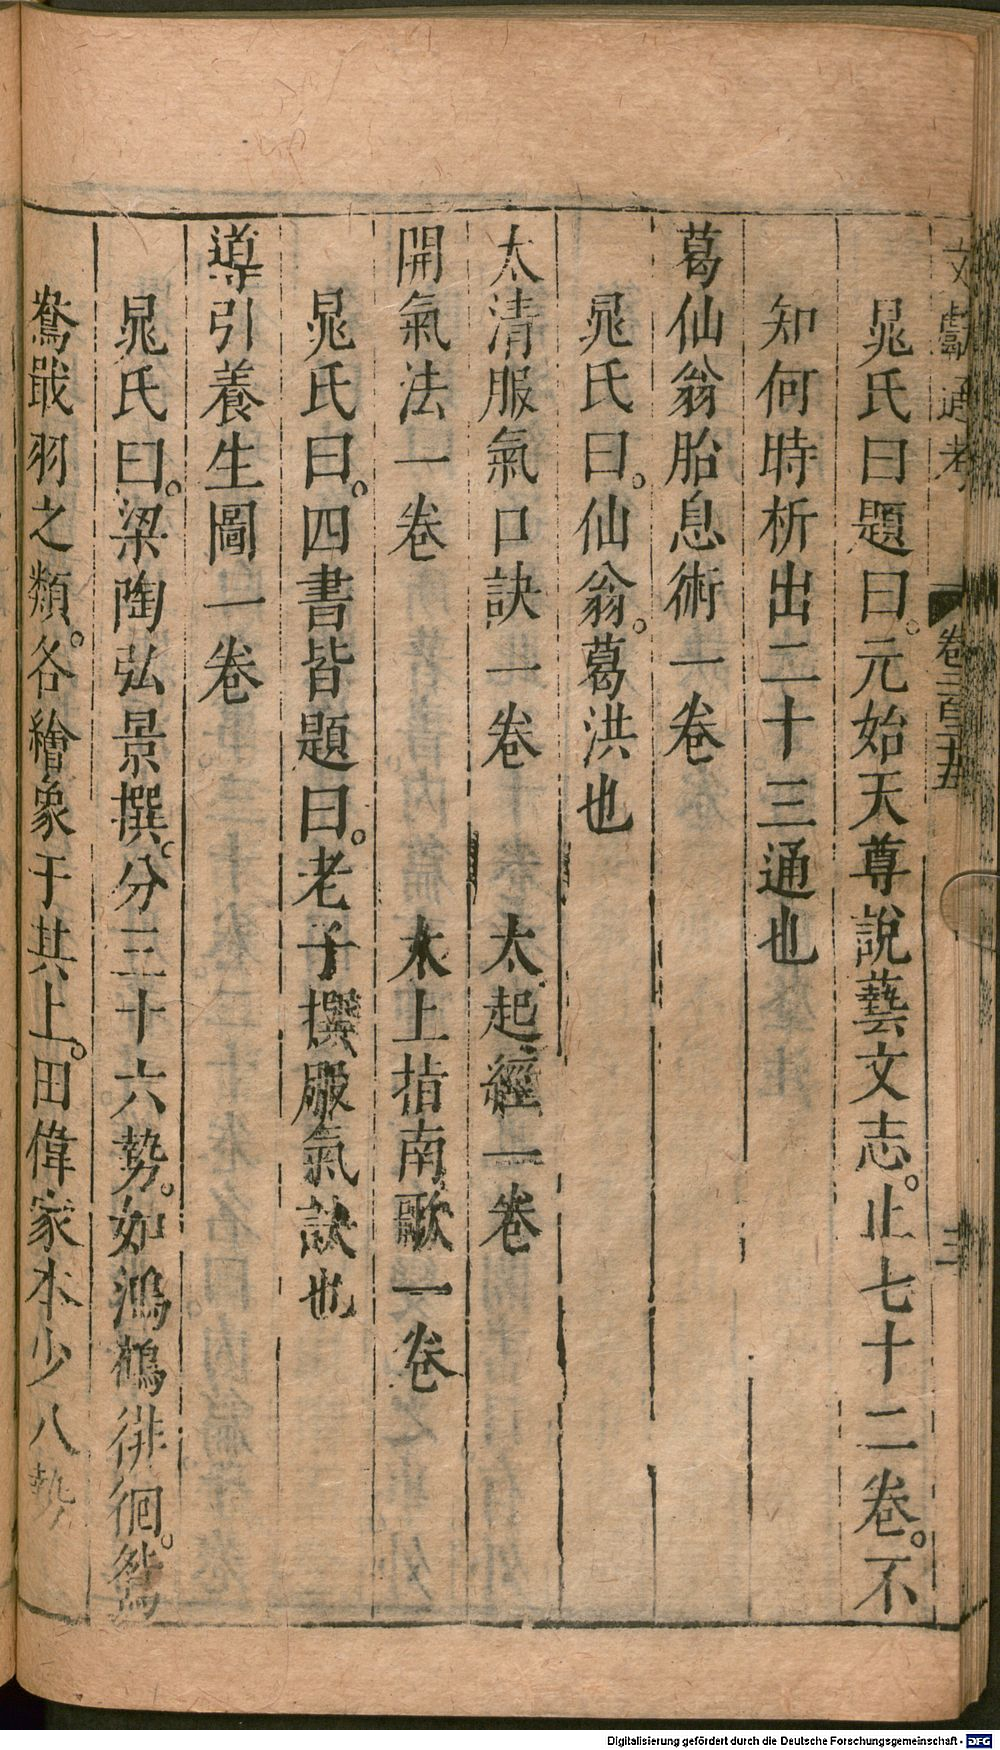 文獻通考 卷二百二十五 三
晁氏曰題曰。元始天尊說藝文志。止七十二卷。不
知何時析出二十三通也
葛仙翁胎息術一卷
晁氏曰。仙翁。葛洪也
太清服氣口訣一卷 太起經一卷
開氣法一卷 太上指南歌一卷
晁氏曰。四書皆題曰。老子撰服氣訣也
導引養生圖一卷
晁氏曰。梁陶弘景撰。分三十六勢。如鴻鶴徘徊。鴛
鴦戢羽之類。各繪象于其上。田偉家本少八勢
Digitalisierung gefördert durch die Deutsche Forschungsgemeinschaft - DFG